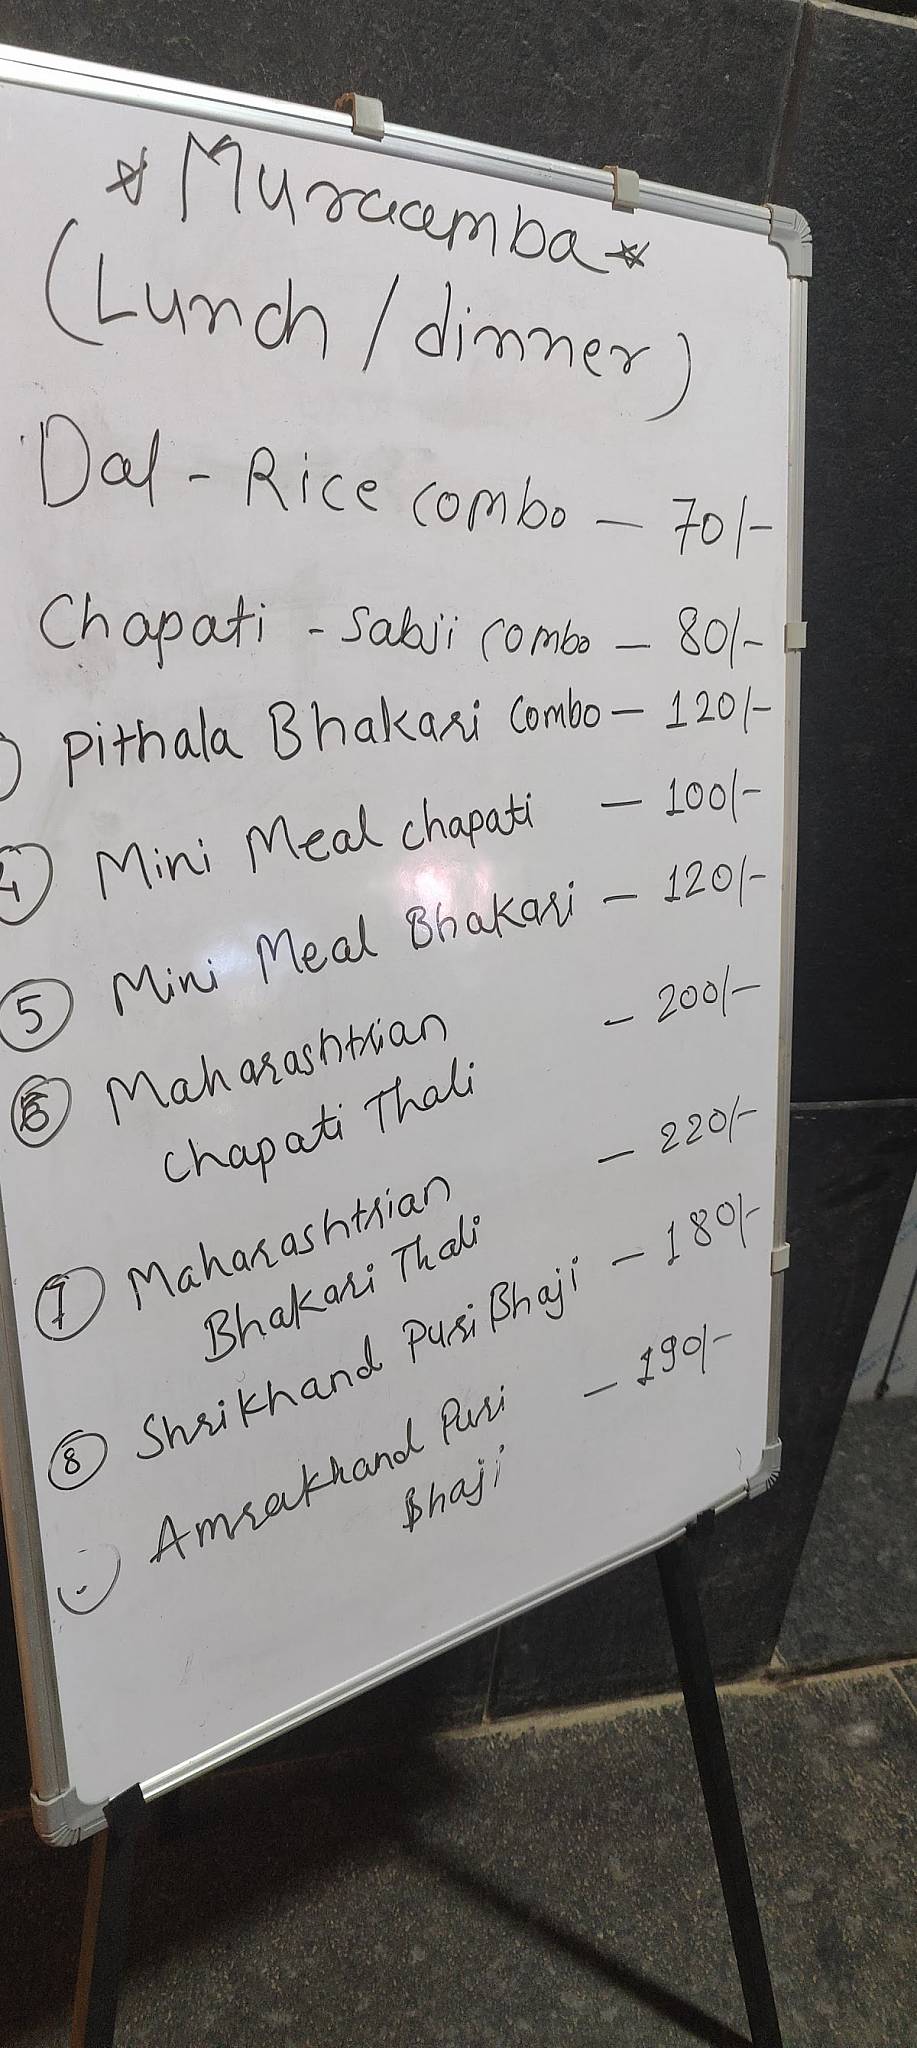 * Muraamba *
(Lunch / dinner)
Dal - Rice combo - 70/-
Chapati - Sabji combo - 80/-
Pithala Bhakari Combo - 120/-
4 Mini Meal chapati - 100/-
5 Mini Meal Bhakari - 120/-
6 Maharashtrian - 200/-
Chapati Thali
7 Maharashtrian - 220/-
Bhakari Thali
8 Shrikhand Puri Bhaji - 180/-
Amrakhand Puri - 190/-
Bhaji